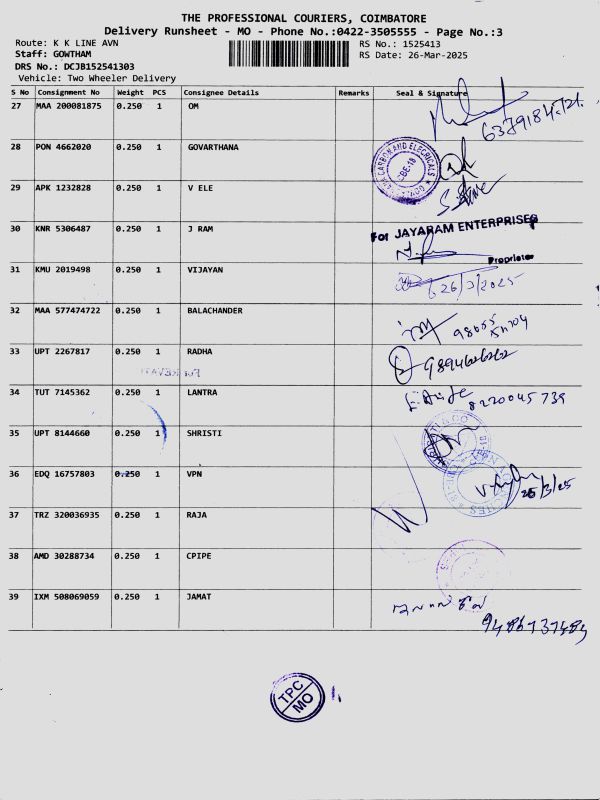 THE PROFESSIONAL COURIERS, COIMBATORE
Delivery Runsheet - MO - Phone No.:0422-3505555 - Page No.:3
Route: K K LINE AVN
RS No.: 1525413
Staff: GOWTHAM
RS Date: 26-Mar-2025
DRS No.: DCJB152541303
Vehicle: Two Wheeler Delivery
S No Consignment No Weight PCS Consignee Details Remarks Seal & Signature
27 MAA 200081875 0.250 1 OM
28 PON 4662020 0.250 1 GOVARTHANA
29 APK 1232828 0.250 1 V ELE
30 KNR 5306487 0.250 1 J RAM
For JAYARAM ENTERPRISES
Proprietor
31 KMU 2019498 0.250 1 VIJAYAN
26/3/2025
32 MAA 577474722 0.250 1 BALACHANDER
33 UPT 2267817 0.250 1 RADHA
9894626262
34 TUT 7145362 0.250 1 LANTRA
8220045739
35 UPT 8144660 0.250 1 SHRISTI
36 EDQ 16757803 0.250 1 VPN
26/3/25
37 TRZ 320036935 0.250 1 RAJA
38 AMD 30288734 0.250 1 CPIPE
39 IXM 508069059 0.250 1 JAMAT
9486737484
TPC
MO